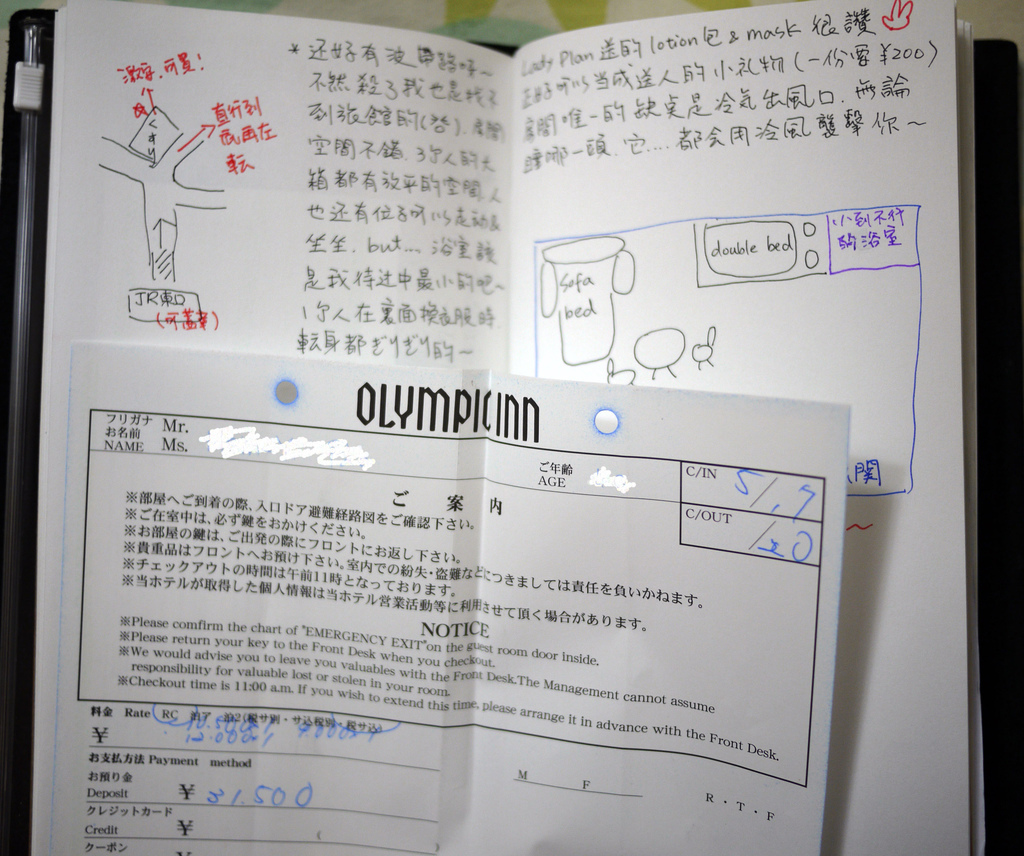 激安、可買!
くすり
直行到
底再左
転
JR東口
(可蓋章)
*还好有波帶路呀~
不然殺了我也是找不
到旅館的(咎).房間
空間不錯,3个人的大
箱都有放平的空間,人
也还有位子可以走動&
坐坐. but.... 浴室該
是我待过中最小的吧~
1个人在裏面換衣服時
転身都ぎりぎり的~
Lady Plan 送的lotion包 & mask 很讚
正好可以当成送人的小礼物(一份要¥200)
房間唯一的缺点是冷氣出風口.無論
睡哪一頭,它....都会用冷風襲擊你~
Sofa
bed
double bed
小到不行
的浴室
関
OLYMPIC INN
フリガナ
お名前
NAME
Mr.
Ms.
ご年齢
AGE
C/IN 5/19
C/OUT /20
ご案内
※部屋へご到着の際、入口ドア避難経路図をご確認下さい。
※ご在室中は、必ず鍵をおかけください。
※お部屋の鍵は、ご出発の際にフロントにお返し下さい。
※貴重品はフロントへお預け下さい。室内での紛失・盗難などにつきましては責任を負いかねます。
※チェックアウトの時間は午前11時となっております。
※当ホテルが取得した個人情報は当ホテル営業活動等に利用させて頂く場合があります。
NOTICE
※Please comfirm the chart of "EMERGENCY EXIT"on the guest room door inside.
※Please return your key to the Front Desk when you checkout.
※We would advise you to leave you valuables with the Front Desk.The Management cannot assume
responsibility for valuable lost or stolen in your room.
※Checkout time is 11:00 a.m. If you wish to extend this time, please arrange it in advance with the Front Desk.
料金 Rate RC 泊ア 泊2(税サ別・サ込税別・税サ込)
¥
お支払方法 Payment method
お預り金
Deposit ¥ 31.500
クレジットカード
Credit ¥ (
)
クーポン
M F
R・T・F